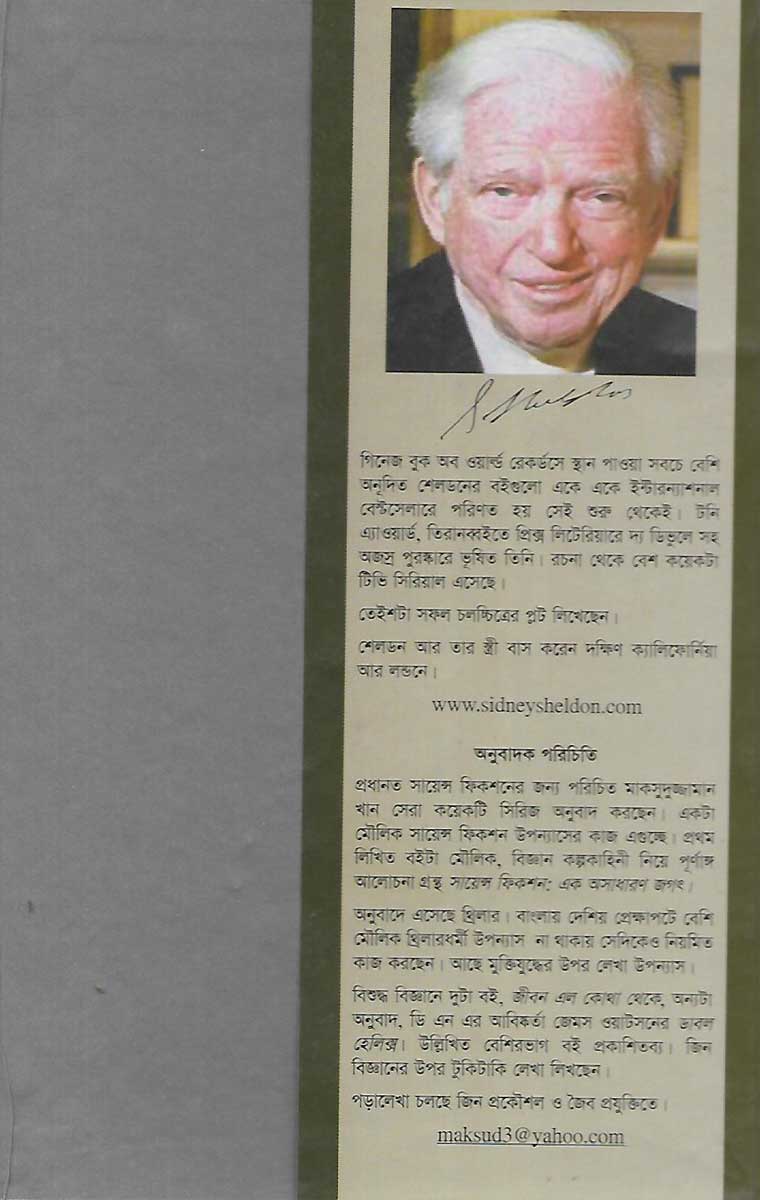 S Sheldon
গিনেজ বুক অব ওয়ার্ল্ড রেকর্ডসে স্থান পাওয়া সবচে বেশি
অনূদিত শেলডনের বইগুলো একে একে ইন্টারন্যাশনাল
বেস্টসেলারে পরিণত হয় সেই শুরু থেকেই। টনি
এ্যাওয়ার্ড, তিরানব্বইতে প্রিক্স লিটেরিয়ারে দ্য ডিভুলে সহ
অজস্র পুরস্কারে ভূষিত তিনি। রচনা থেকে বেশ কয়েকটা
টিভি সিরিয়াল এসেছে।
তেইশটা সফল চলচ্চিত্রের প্লট লিখেছেন।
শেলডন আর তার স্ত্রী বাস করেন দক্ষিণ ক্যালিফোর্নিয়া
আর লন্ডনে।
www.sidneysheldon.com
অনুবাদক পরিচিতি
প্রধানত সায়েন্স ফিকশনের জন্য পরিচিত মাকসুদুজ্জামান
খান সেরা কয়েকটি সিরিজ অনুবাদ করছেন। একটা
মৌলিক সায়েন্স ফিকশন উপন্যাসের কাজ এগুচ্ছে। প্রথম
লিখিত বইটা মৌলিক, বিজ্ঞান কল্পকাহিনী নিয়ে পূর্ণাঙ্গ
আলোচনা গ্রন্থ সায়েন্স ফিকশন: এক অসাধারণ জগৎ।
অনুবাদে এসেছে থ্রিলার। বাংলায় দেশিয় প্রেক্ষাপটে বেশি
মৌলিক থ্রিলারধর্মী উপন্যাস না থাকায় সেদিকেও নিয়মিত
কাজ করছেন। আছে মুক্তিযুদ্ধের উপর লেখা উপন্যাস।
বিশুদ্ধ বিজ্ঞানে দুটা বই, জীবন এল কোথা থেকে, অন্যটা
অনুবাদ, ডি এন এর আবিষ্কর্তা জেমস ওয়াটসনের ডাবল
হেলিক্স। উল্লিখিত বেশিরভাগ বই প্রকাশিতব্য। জিন
বিজ্ঞানের উপর টুকিটাকি লেখা লিখছেন।
পড়ালেখা চলছে জিন প্রকৌশল ও জৈব প্রযুক্তিতে।
maksud3@yahoo.com